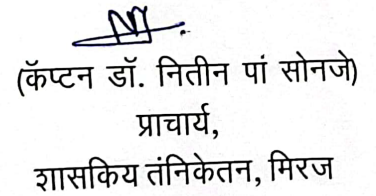 (कॅप्टन डॉ. नितीन पां सोनजे)
प्राचार्य,
शासकिय तंनिकेतन, मिरज